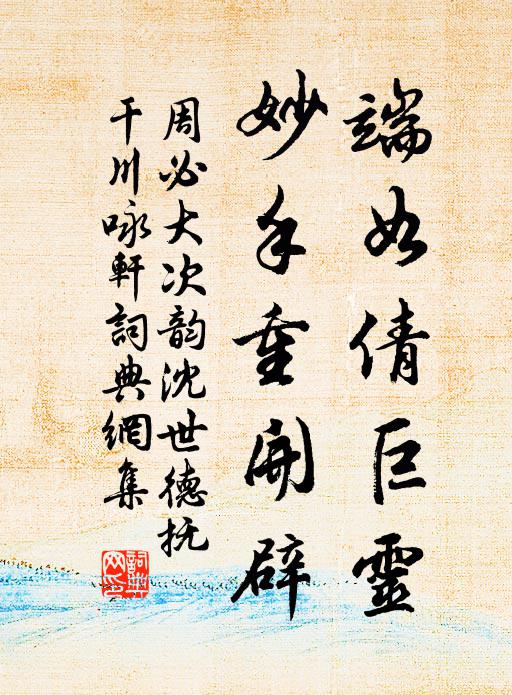 端如倩巨靈
妙手重開辟
周必大次韵沈世德抚
干川咏軒詞典網集